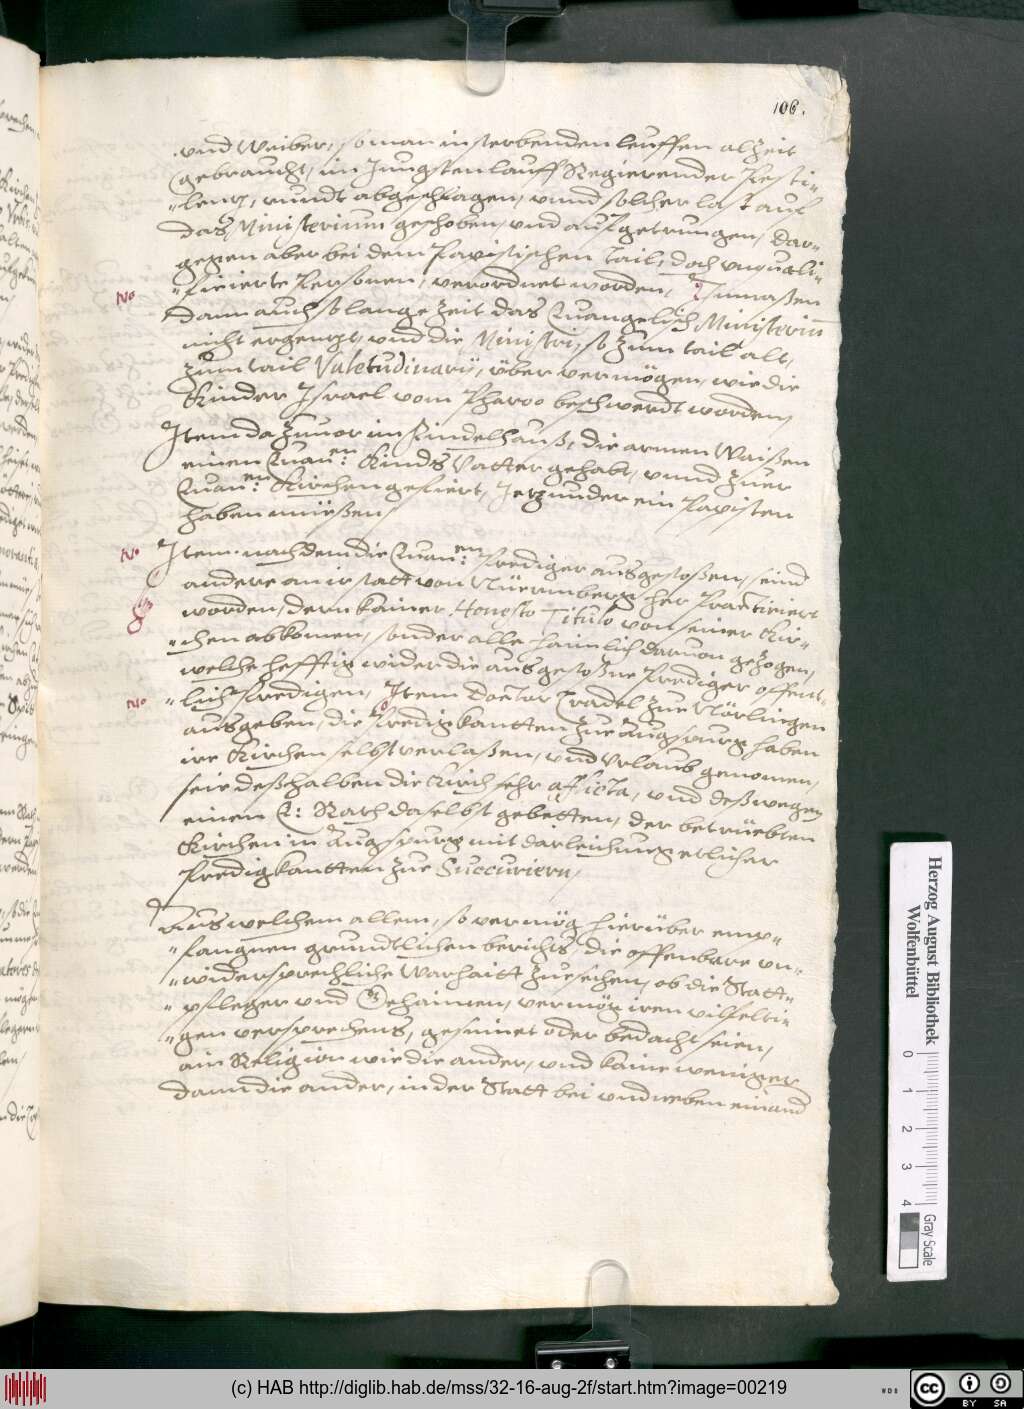 106.
vnd Weiber, so man in sterbenden leuffen alzeit
gebraucht, im Jungsten lauff Regierender Pesti-
lentz, rundt abgeschlagen, vnnd solcher last auf
das Ministerium geschoben, vnd aufgetrungen, dar-
gegen aber bei dem Papistischen tail, doch vnquali-
ficierte Personen, verordnet worden, Inmaßen
No
dann auch so lange Zeit das Euangelisch Ministeriu
nicht ergentzt, vnd die Ministri, so zum tail alt,
zum tail Valetudinarij, über vermögen, wie die
Kinder Israel vom Pharao beschwerdt worden,
Item da zuuor im Findelhauß, die armen Waißen
einen Euanen: Kinds Vatter gehabt, vnnd zuer
Euanen: Kirchen gefiert, Jetzunder ein Papisten
haben müeßen
No
Item. nachdem die Euanen: Prediger ausgestoßen, seind
andere an ir statt von Nüermberg her Practiciert
worden, dern kainer Honesto Titulo von seiner Kir-
chen abkomen, sonder alle haimlich daruon gezogen,
welche hefftig wider die ausgestoßne Prediger offent-
No
lich Predigen, Item doctor Cradel zue Nörlingen
ausgeben, die Predigkantten zue Augspurg haben
ire Kirchen selbst verlaßen, vnd Vrlaub genomen,
seie deßhalben die Kirch sehr afflicta, vnd deßwegen
einen E: Rath daselbst gebetten, der betrüebten
Kirchen in Augspurg mit darleichung etlicher
Predigkantten zue Succuriern,
Aus welchem allem, so vermög hierüber emp-
fangnen grundtlichen berichts, die offenbare vn-
widersprechliche Warhaitt zuesehen, ob die Statt-
pfleger vnd Gehaimen, vermög iren vilfelti-
gen versprechens, gesinnet oder bedacht seien,
ain Religion wie die ander, vnd kaine weniger
dann die ander, in der Statt bei vnd neben einand
Herzog August Bibliothek
Wolfenbüttel
0 1 2 3 4
Gray Scale
(c) HAB http://diglib.hab.de/mss/32-16-aug-2f/start.htm?image=00219
WDB
cc BY SA